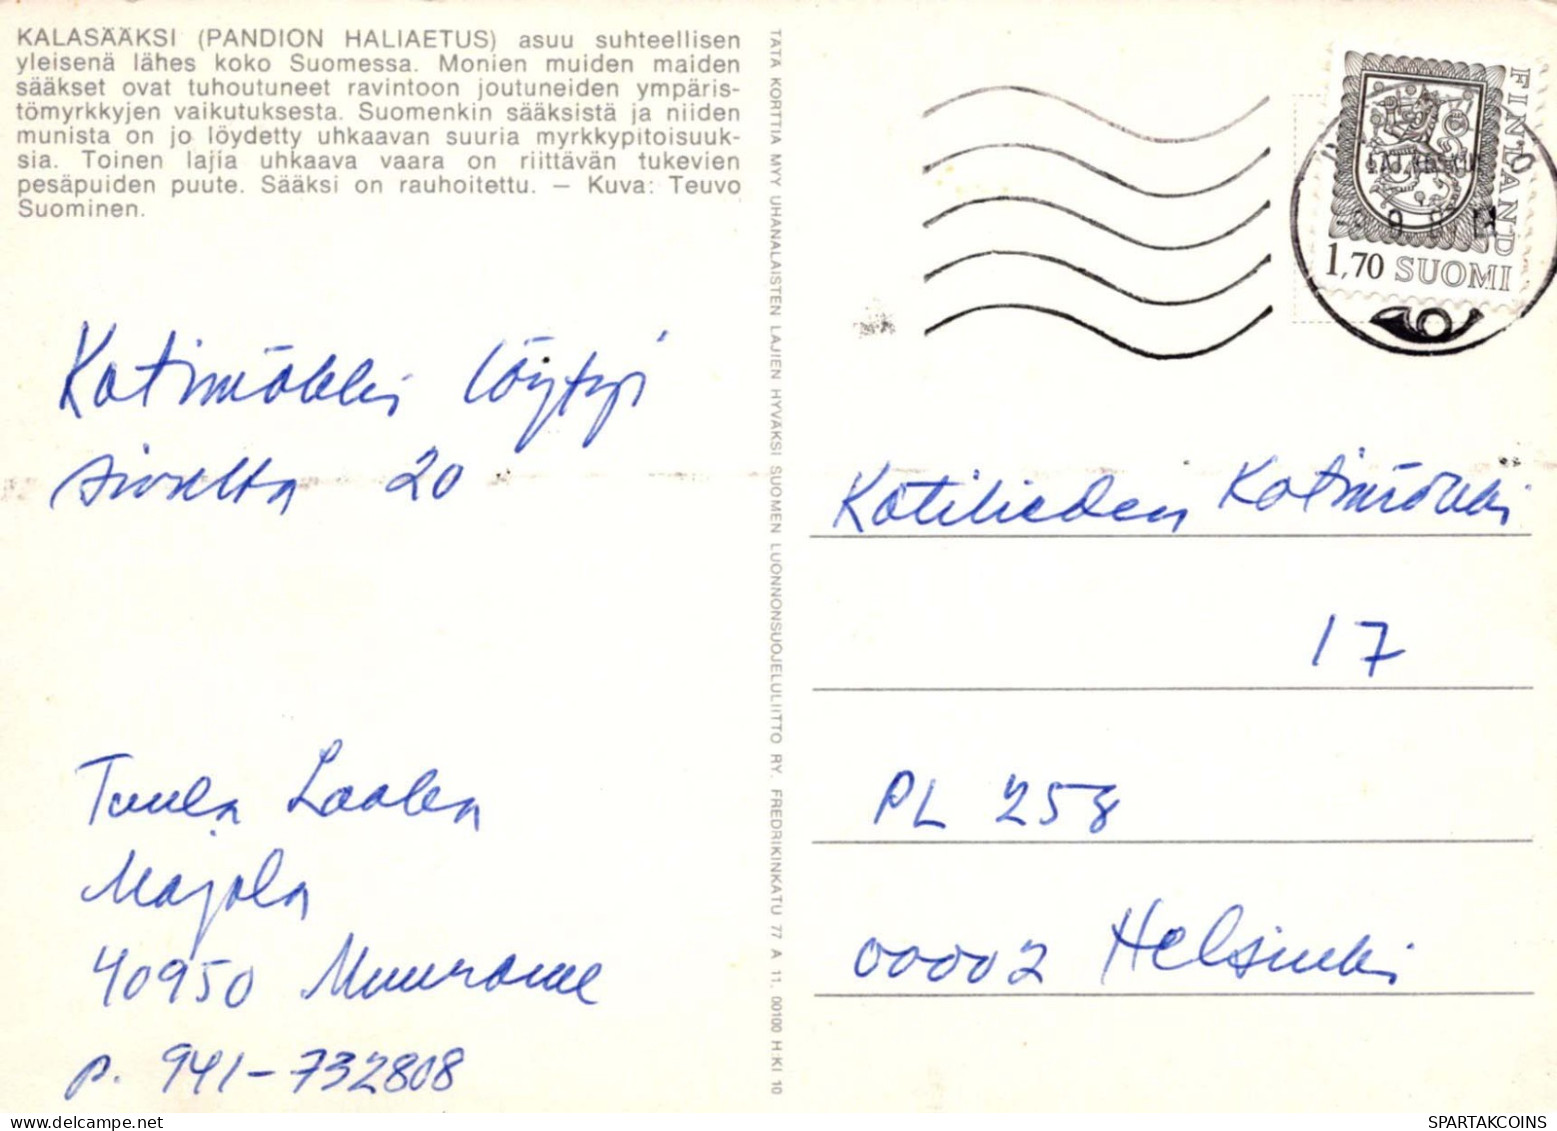 KALASÄÄKSI (PANDION HALIAETUS) asuu suhteellisen
yleisenä lähes koko Suomessa. Monien muiden maiden
sääkset ovat tuhoutuneet ravintoon joutuneiden ympäris-
tömyrkkyjen vaikutuksesta. Suomenkin sääksistä ja niiden
munista on jo löydetty uhkaavan suuria myrkkypitoisuuk-
sia. Toinen lajia uhkaava vaara on riittävän tukevien
pesäpuiden puute. Sääksi on rauhoitettu. — Kuva: Teuvo
Suominen.
Kotimökki löytyi
sivulta 20
Tuula Laalen
Majola
40950 Muurame
p. 941-732808
TÄTÄ KORTTIA MYY UHANALAISTEN LAJIEN HYVÄKSI SUOMEN LUONNONSUOJELULIITTO RY. FREDRIKINKATU 77 A 11. 00100 H:KI 10
FINLAND
1,70 SUOMI
Kotilieden Kotimökki
17
PL 258
00002 Helsinki
delcampe.net
SPARTAKCOINS